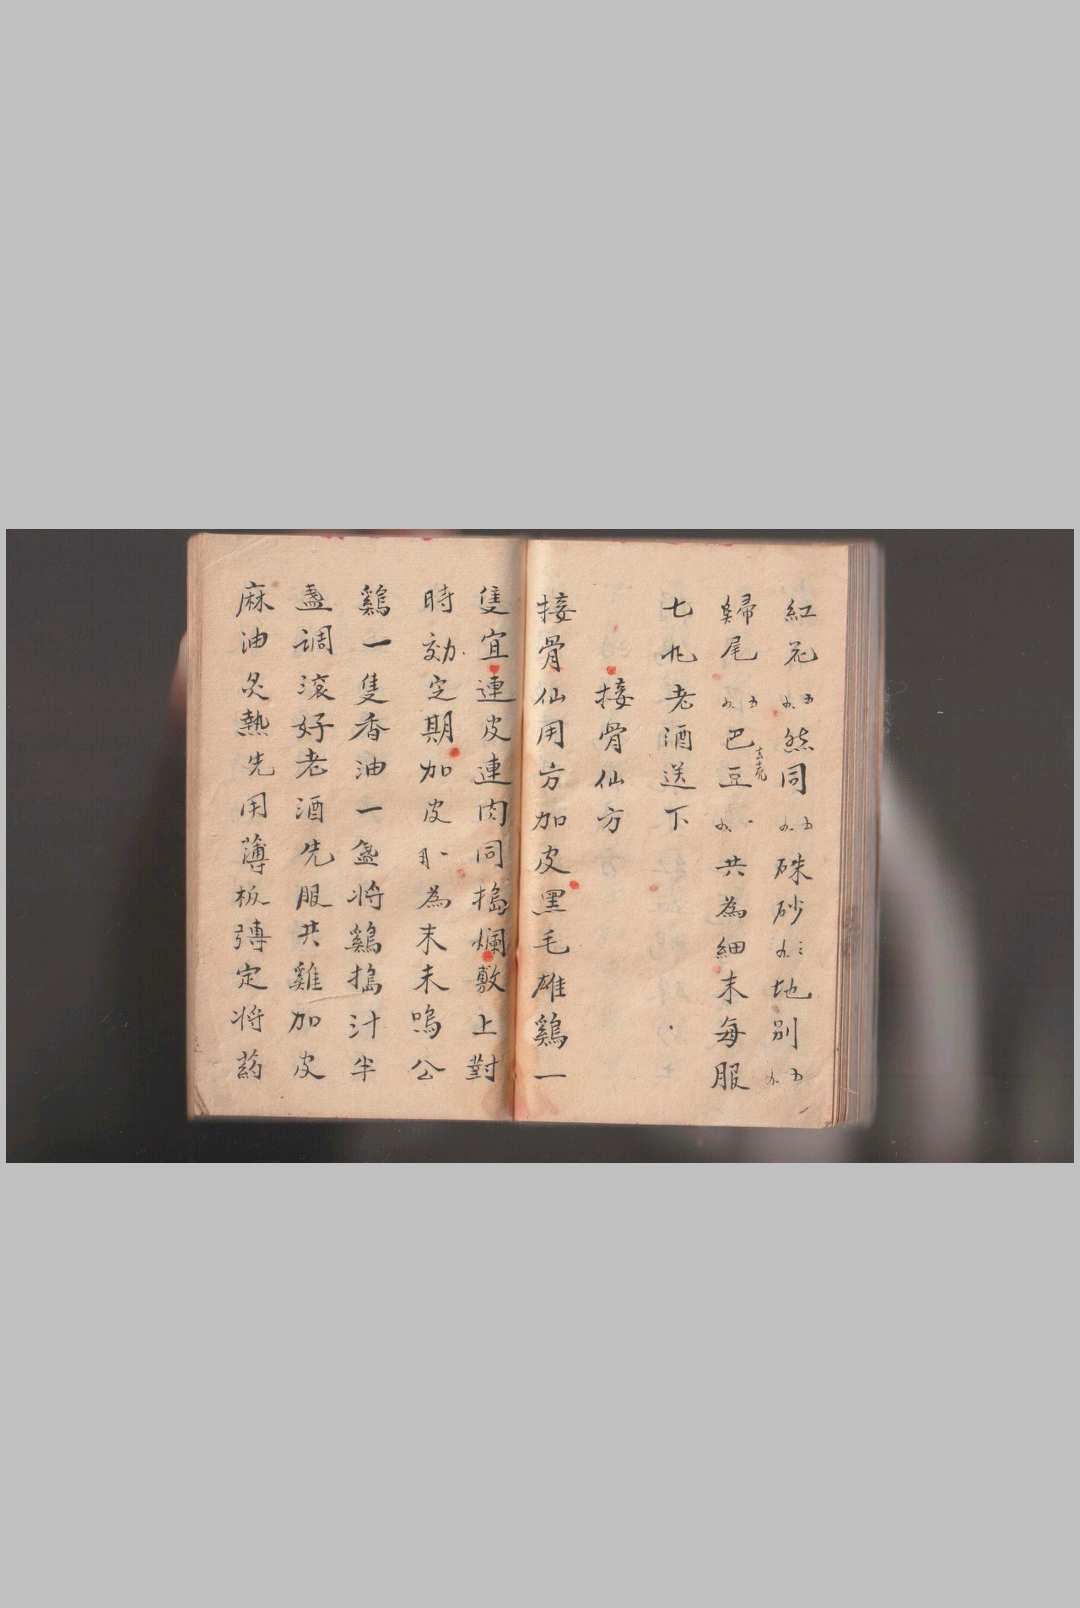 紅花五分然同五分硃砂三分地別五分
歸尾五分巴豆去壳一分共為細末每服
七九老酒送下
接骨仙方
接骨仙用方加皮黑毛雄鷄一
隻宜連皮連肉同搗爛敷上對
時効定期加皮為末未鳴公
鷄一隻香油一盞將鷄搗汁半
盞調滚好老酒先服共雞加皮
麻油炙熱先用薄板定將药